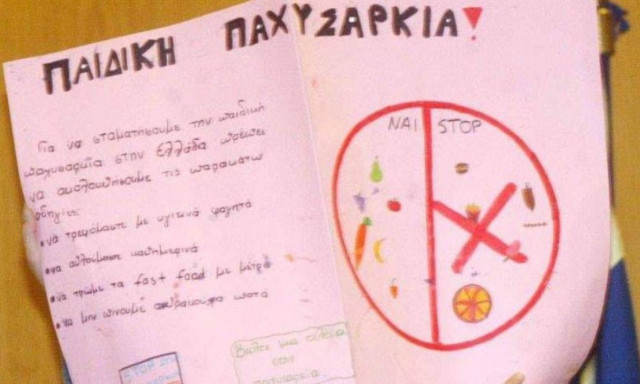 ΠΑΙΔΙΚΗ ΠΑΧΥΣΑΡΚΙΑ!
Για να σταματήσουμε την παιδική
παχυσαρκία στην Ελλάδα πρέπει
να ακολουθήσουμε τις παρακάτω
οδηγίες:
•να τρεφόμαστε με υγιεινά φαγητά
•να αθλούμαστε καθημερινά
•να τρώμε τα fast food με μέτρο
•να μην πίνουμε ποτά
ΝΑΙ STOP
Βάλτε μια
στην
ΣΤΟΠ